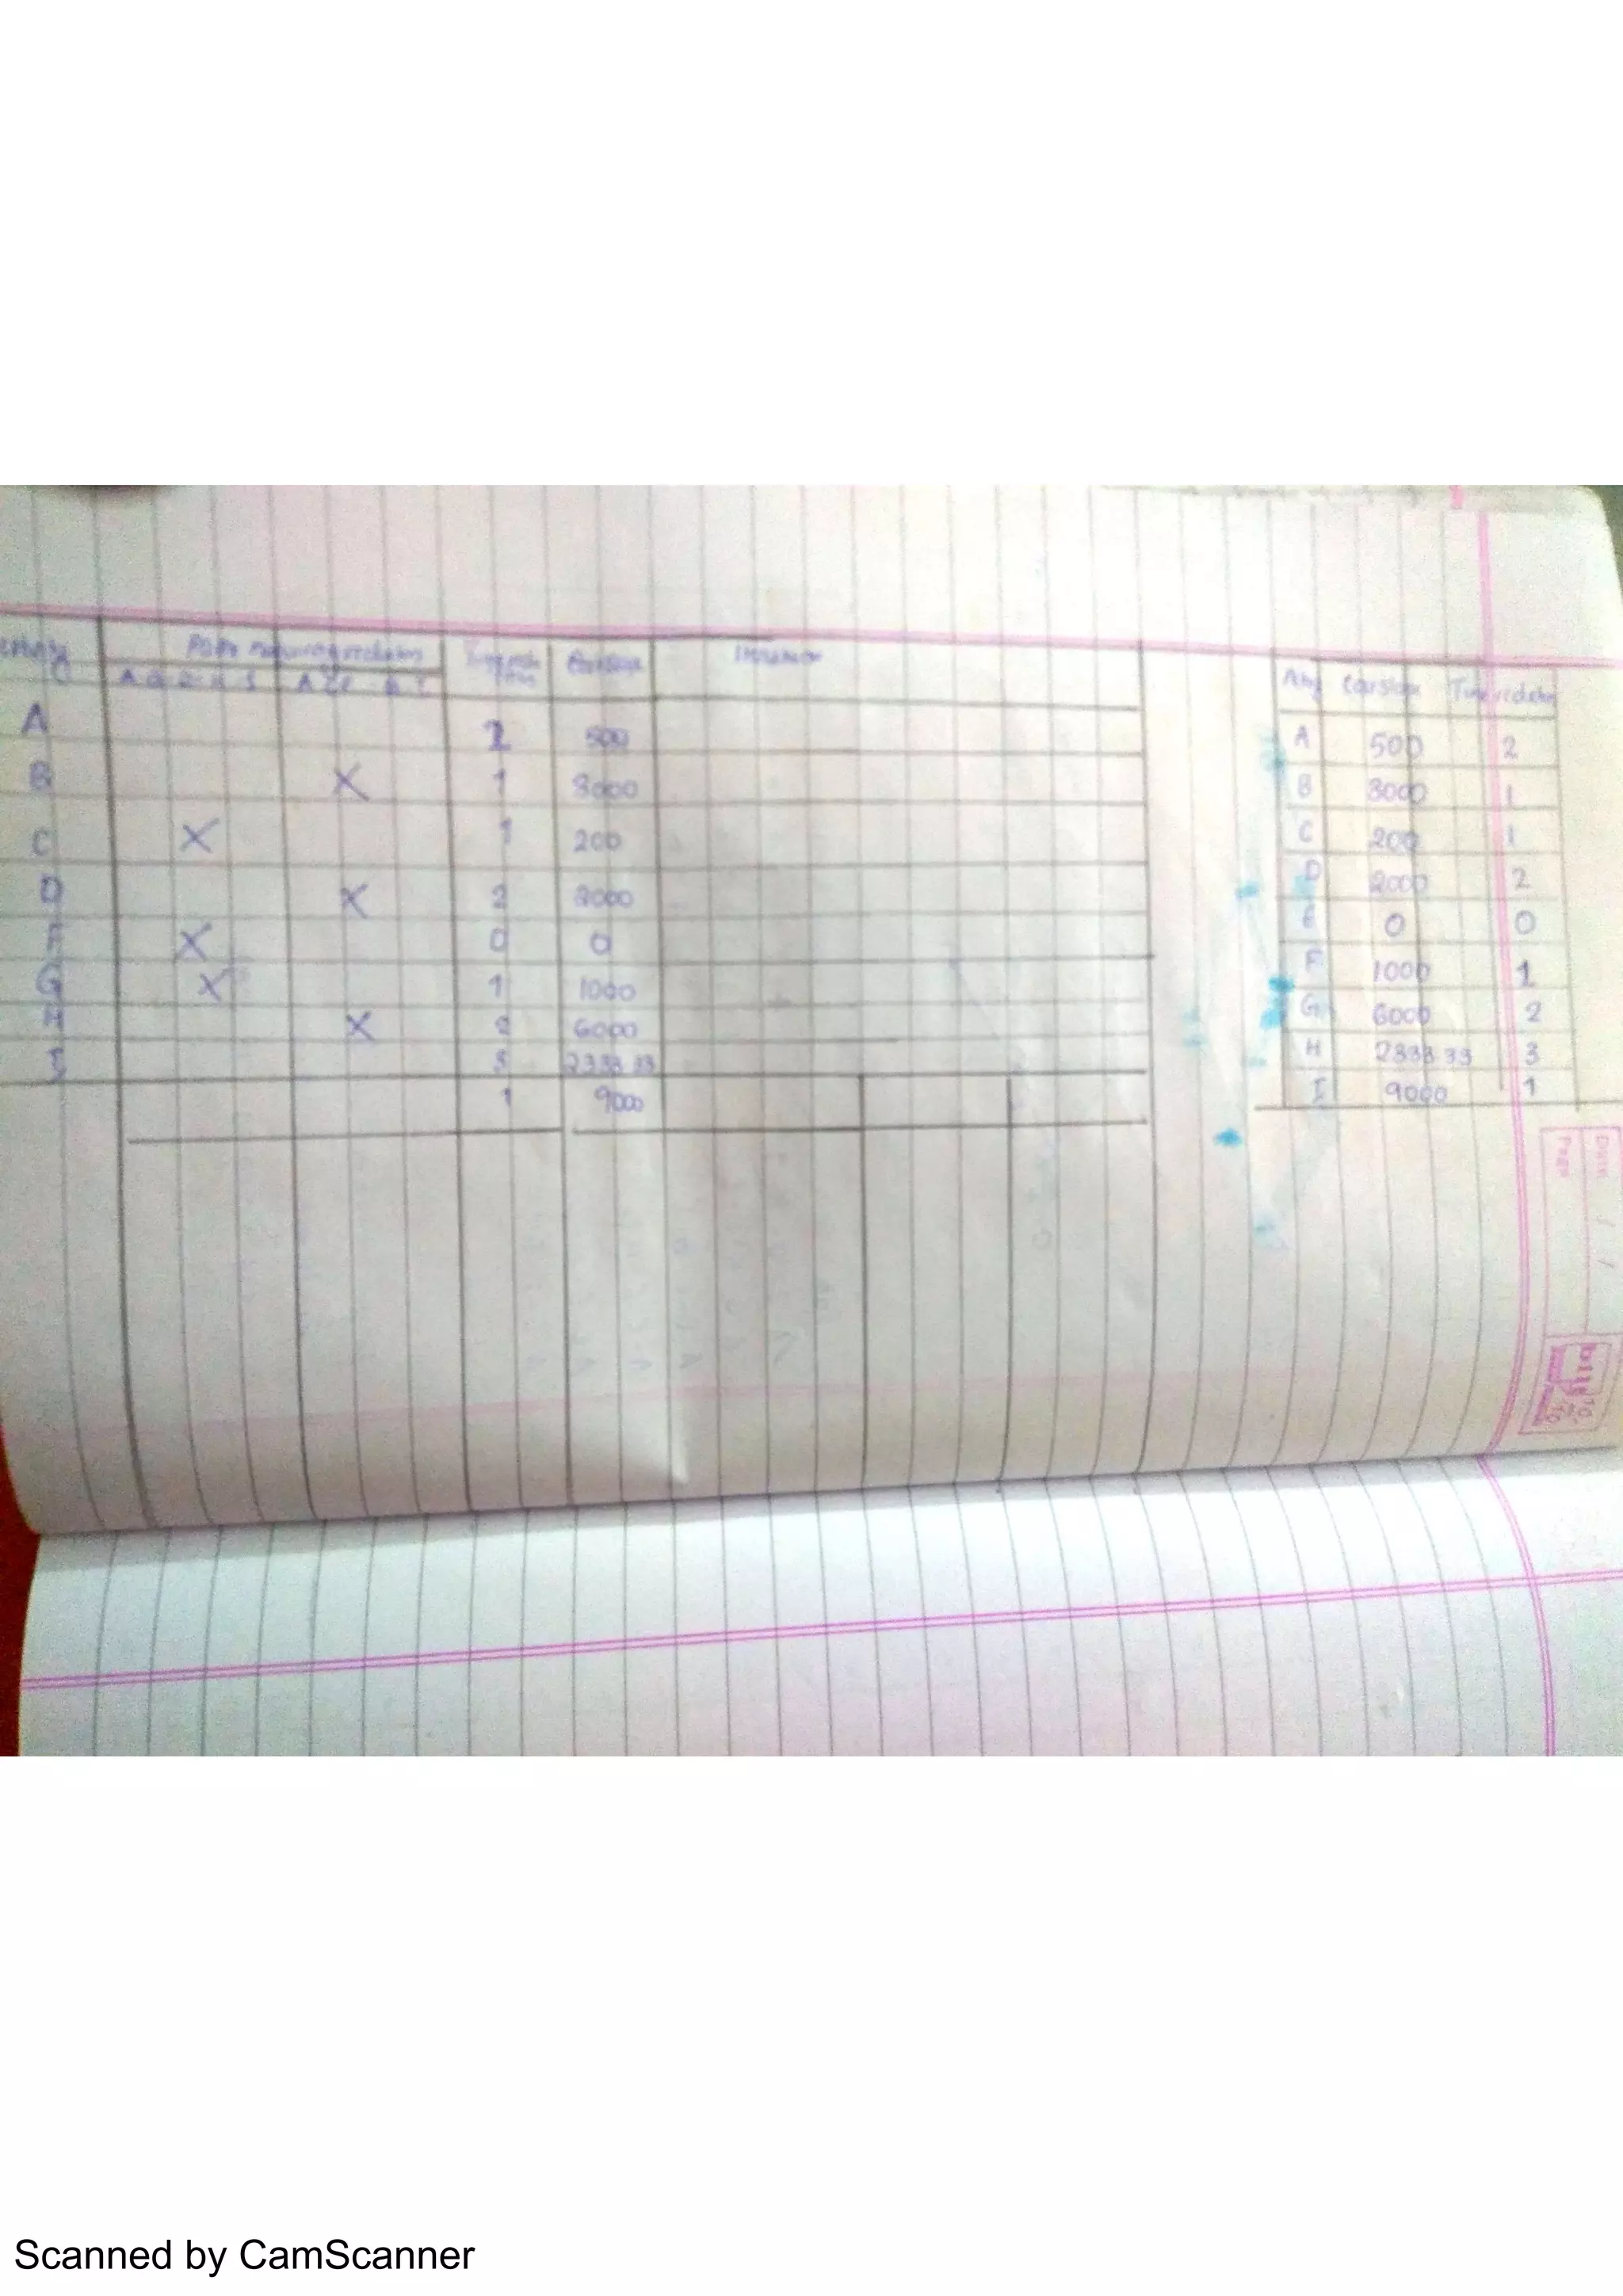 Activity Paths requiring reduction Cost slope Iteration
A 2 500
B X 1 3000
C X 1 200
D X 2 2000
X 0 0
G X 1 1000
H X 2 6000
I 3 2333.33
1 9000
Cost slope Time reduction
A 500 2
B 3000 1
C 200 1
D 2000 2
E 0 0
F 1000 1
G 6000 2
H 2333.33 3
I 9000 1
Date / /
Page
Scanned by CamScanner